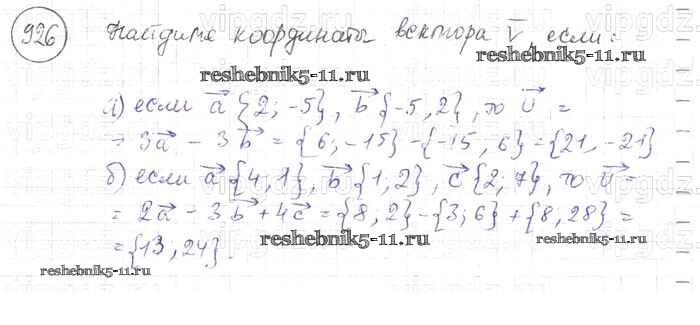 926 Найдите координаты вектора v⃗, если:
reshebnik5-11.ru reshebnik5-11.ru
а) если a⃗ {2; -5}, b⃗ {-5, 2}, то υ⃗ =
= 3a⃗ - 3b⃗ = {6, -15} - {-15, 6} = {21, -21}
б) если a⃗ {4, 1}, b⃗ {1; 2}, c⃗ {2; 7}, то υ⃗ =
= 2a⃗ - 3b⃗ + 4c⃗ = {8, 2} - {3; 6} + {8, 28} =
= {13, 24}.
reshebnik5-11.ru reshebnik5-11.ru reshebnik5-11.ru